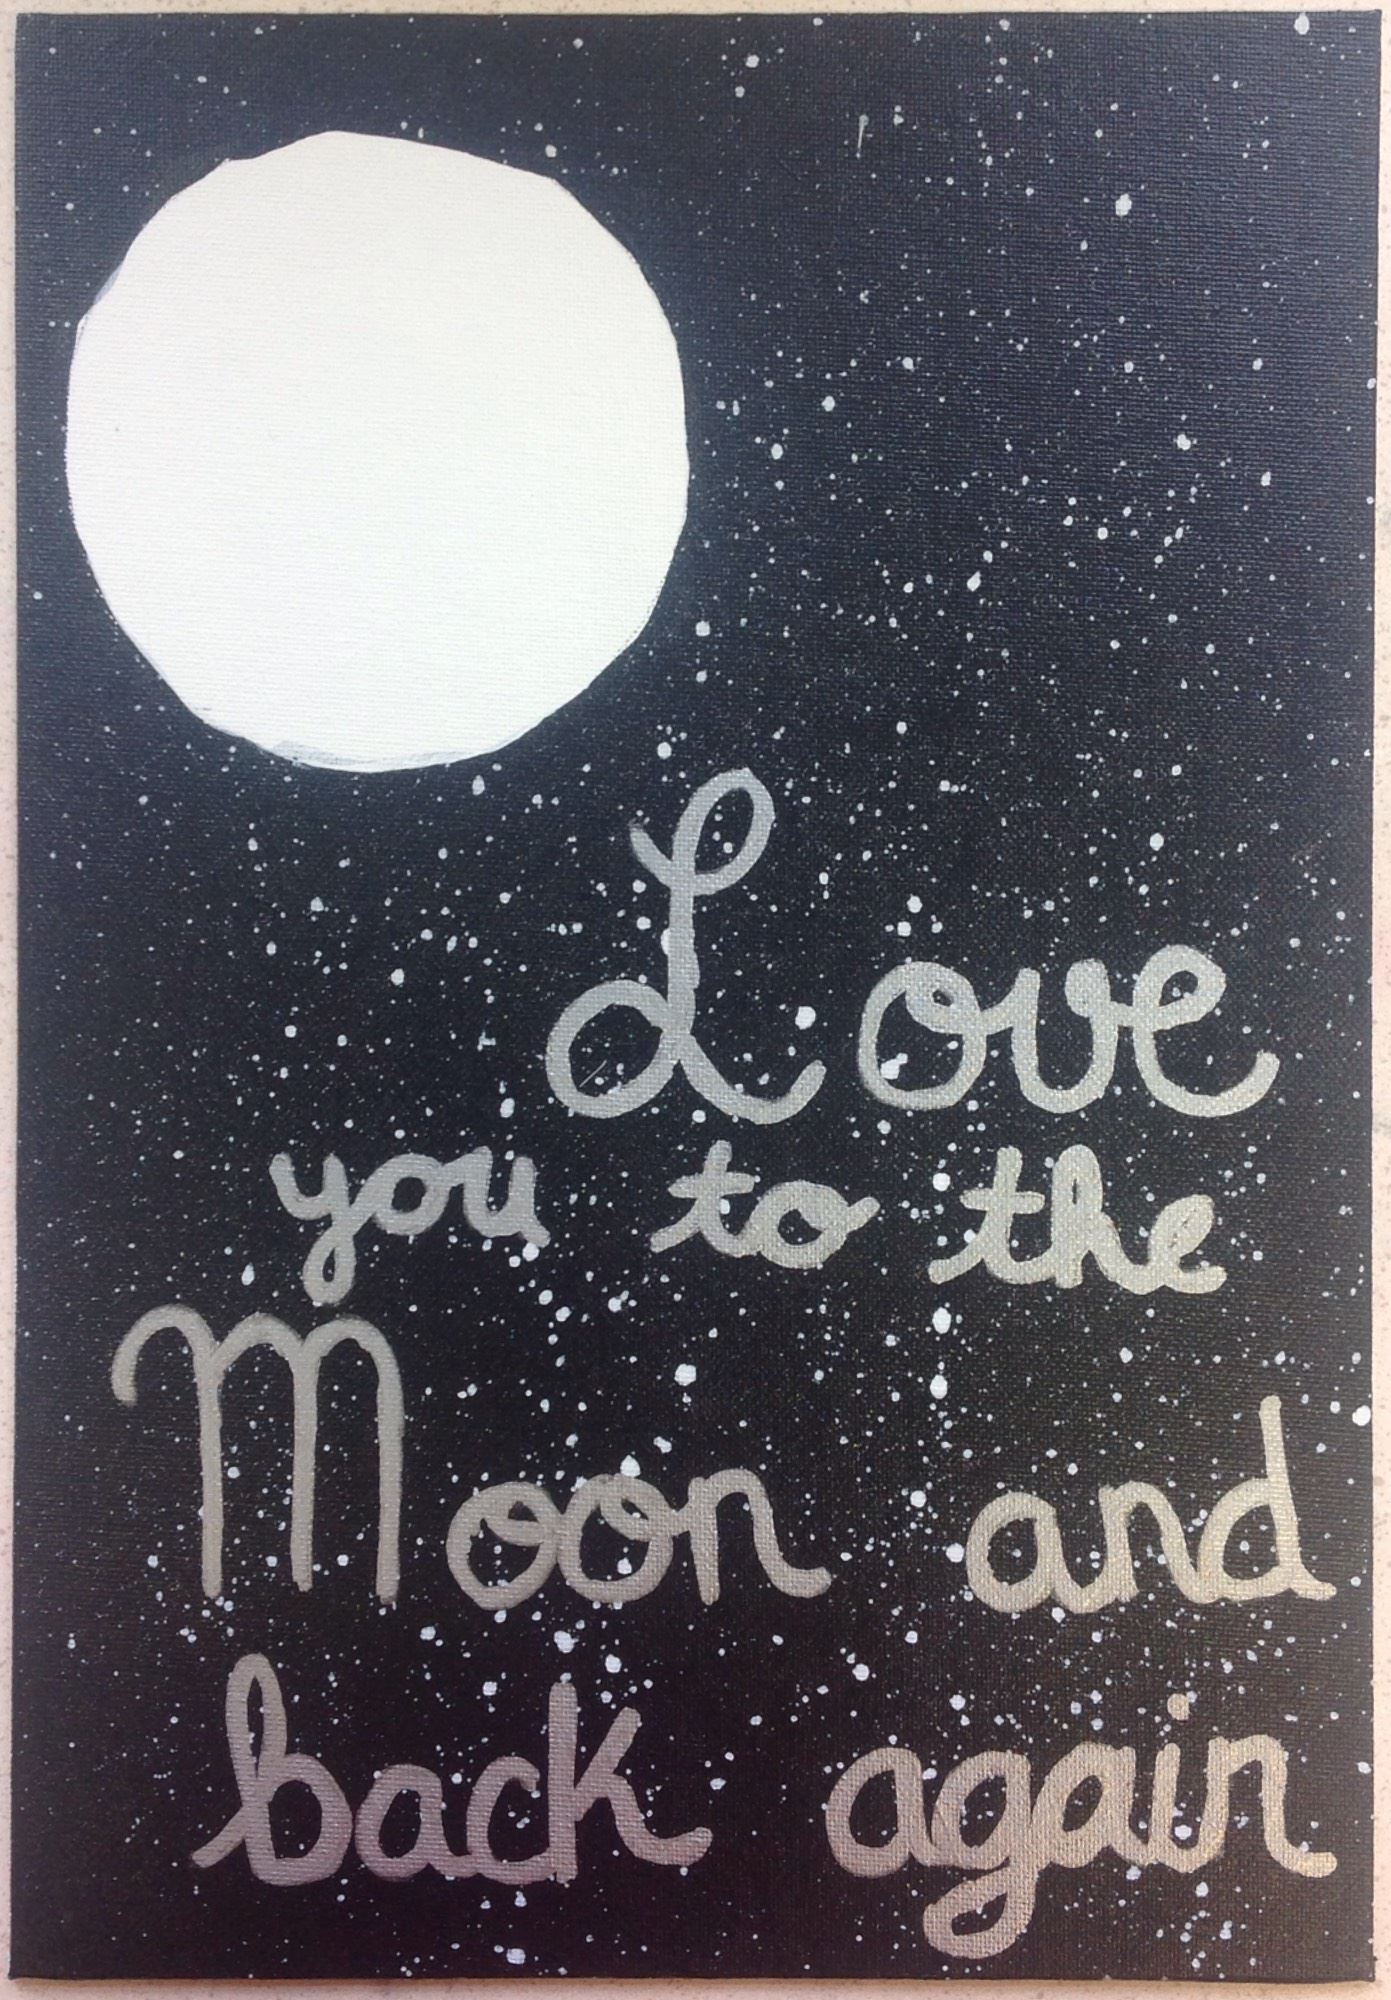 Love
you to the
Moon and
back again